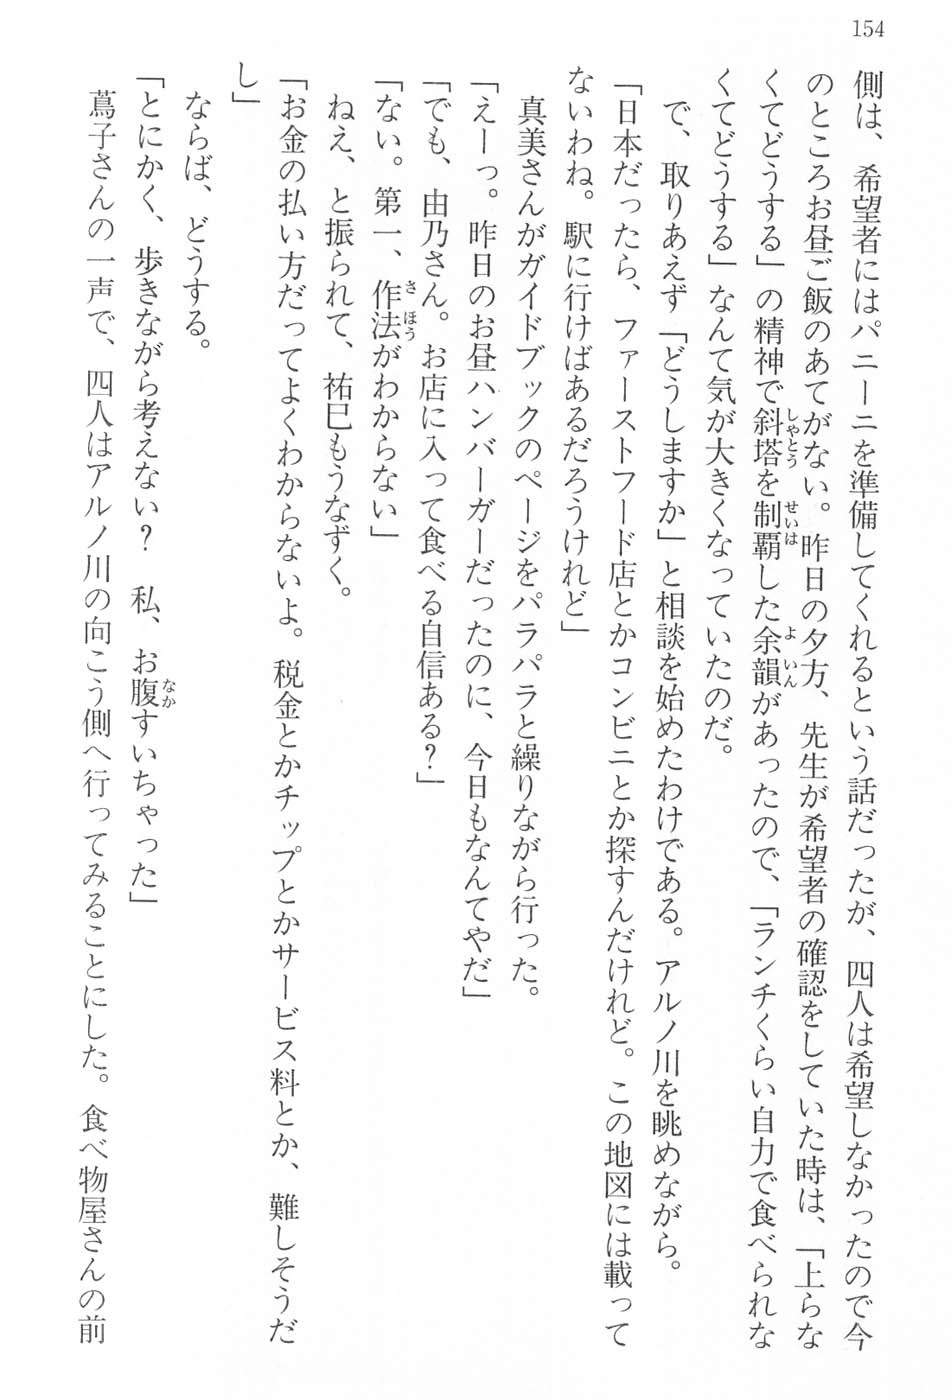 154
側は、希望者にはパニーニを準備してくれるという話だったが、四人は希望しなかったので今
のところお昼ご飯のあてがない。昨日の夕方、先生が希望者の確認をしていた時は、「上らな
くてどうする」の精神で斜塔を制覇した余韻があったので、「ランチくらい自力で食べられな
くてどうする」なんて気が大きくなっていたのだ。
で、取りあえず「どうしますか」と相談を始めたわけである。アルノ川を眺めながら。
「日本だったら、ファーストフード店とかコンビニとか探すんだけれど。この地図には載って
ないわね。駅に行けばあるだろうけれど」
真美さんがガイドブックのページをパラパラと繰りながら行った。
「えーっ。昨日のお昼ハンバーガーだったのに、今日もなんてやだ」
「でも、由乃さん。お店に入って食べる自信ある？」
「ない。第一、作法がわからない」
ねえ、と振られて、祐巳もうなずく。
「お金の払い方だってよくわからないよ。税金とかチップとかサービス料とか、難しそうだ
し」
ならば、どうする。
「とにかく、歩きながら考えない？　私、お腹すいちゃった」
蔦子さんの一声で、四人はアルノ川の向こう側へ行ってみることにした。食べ物屋さんの前